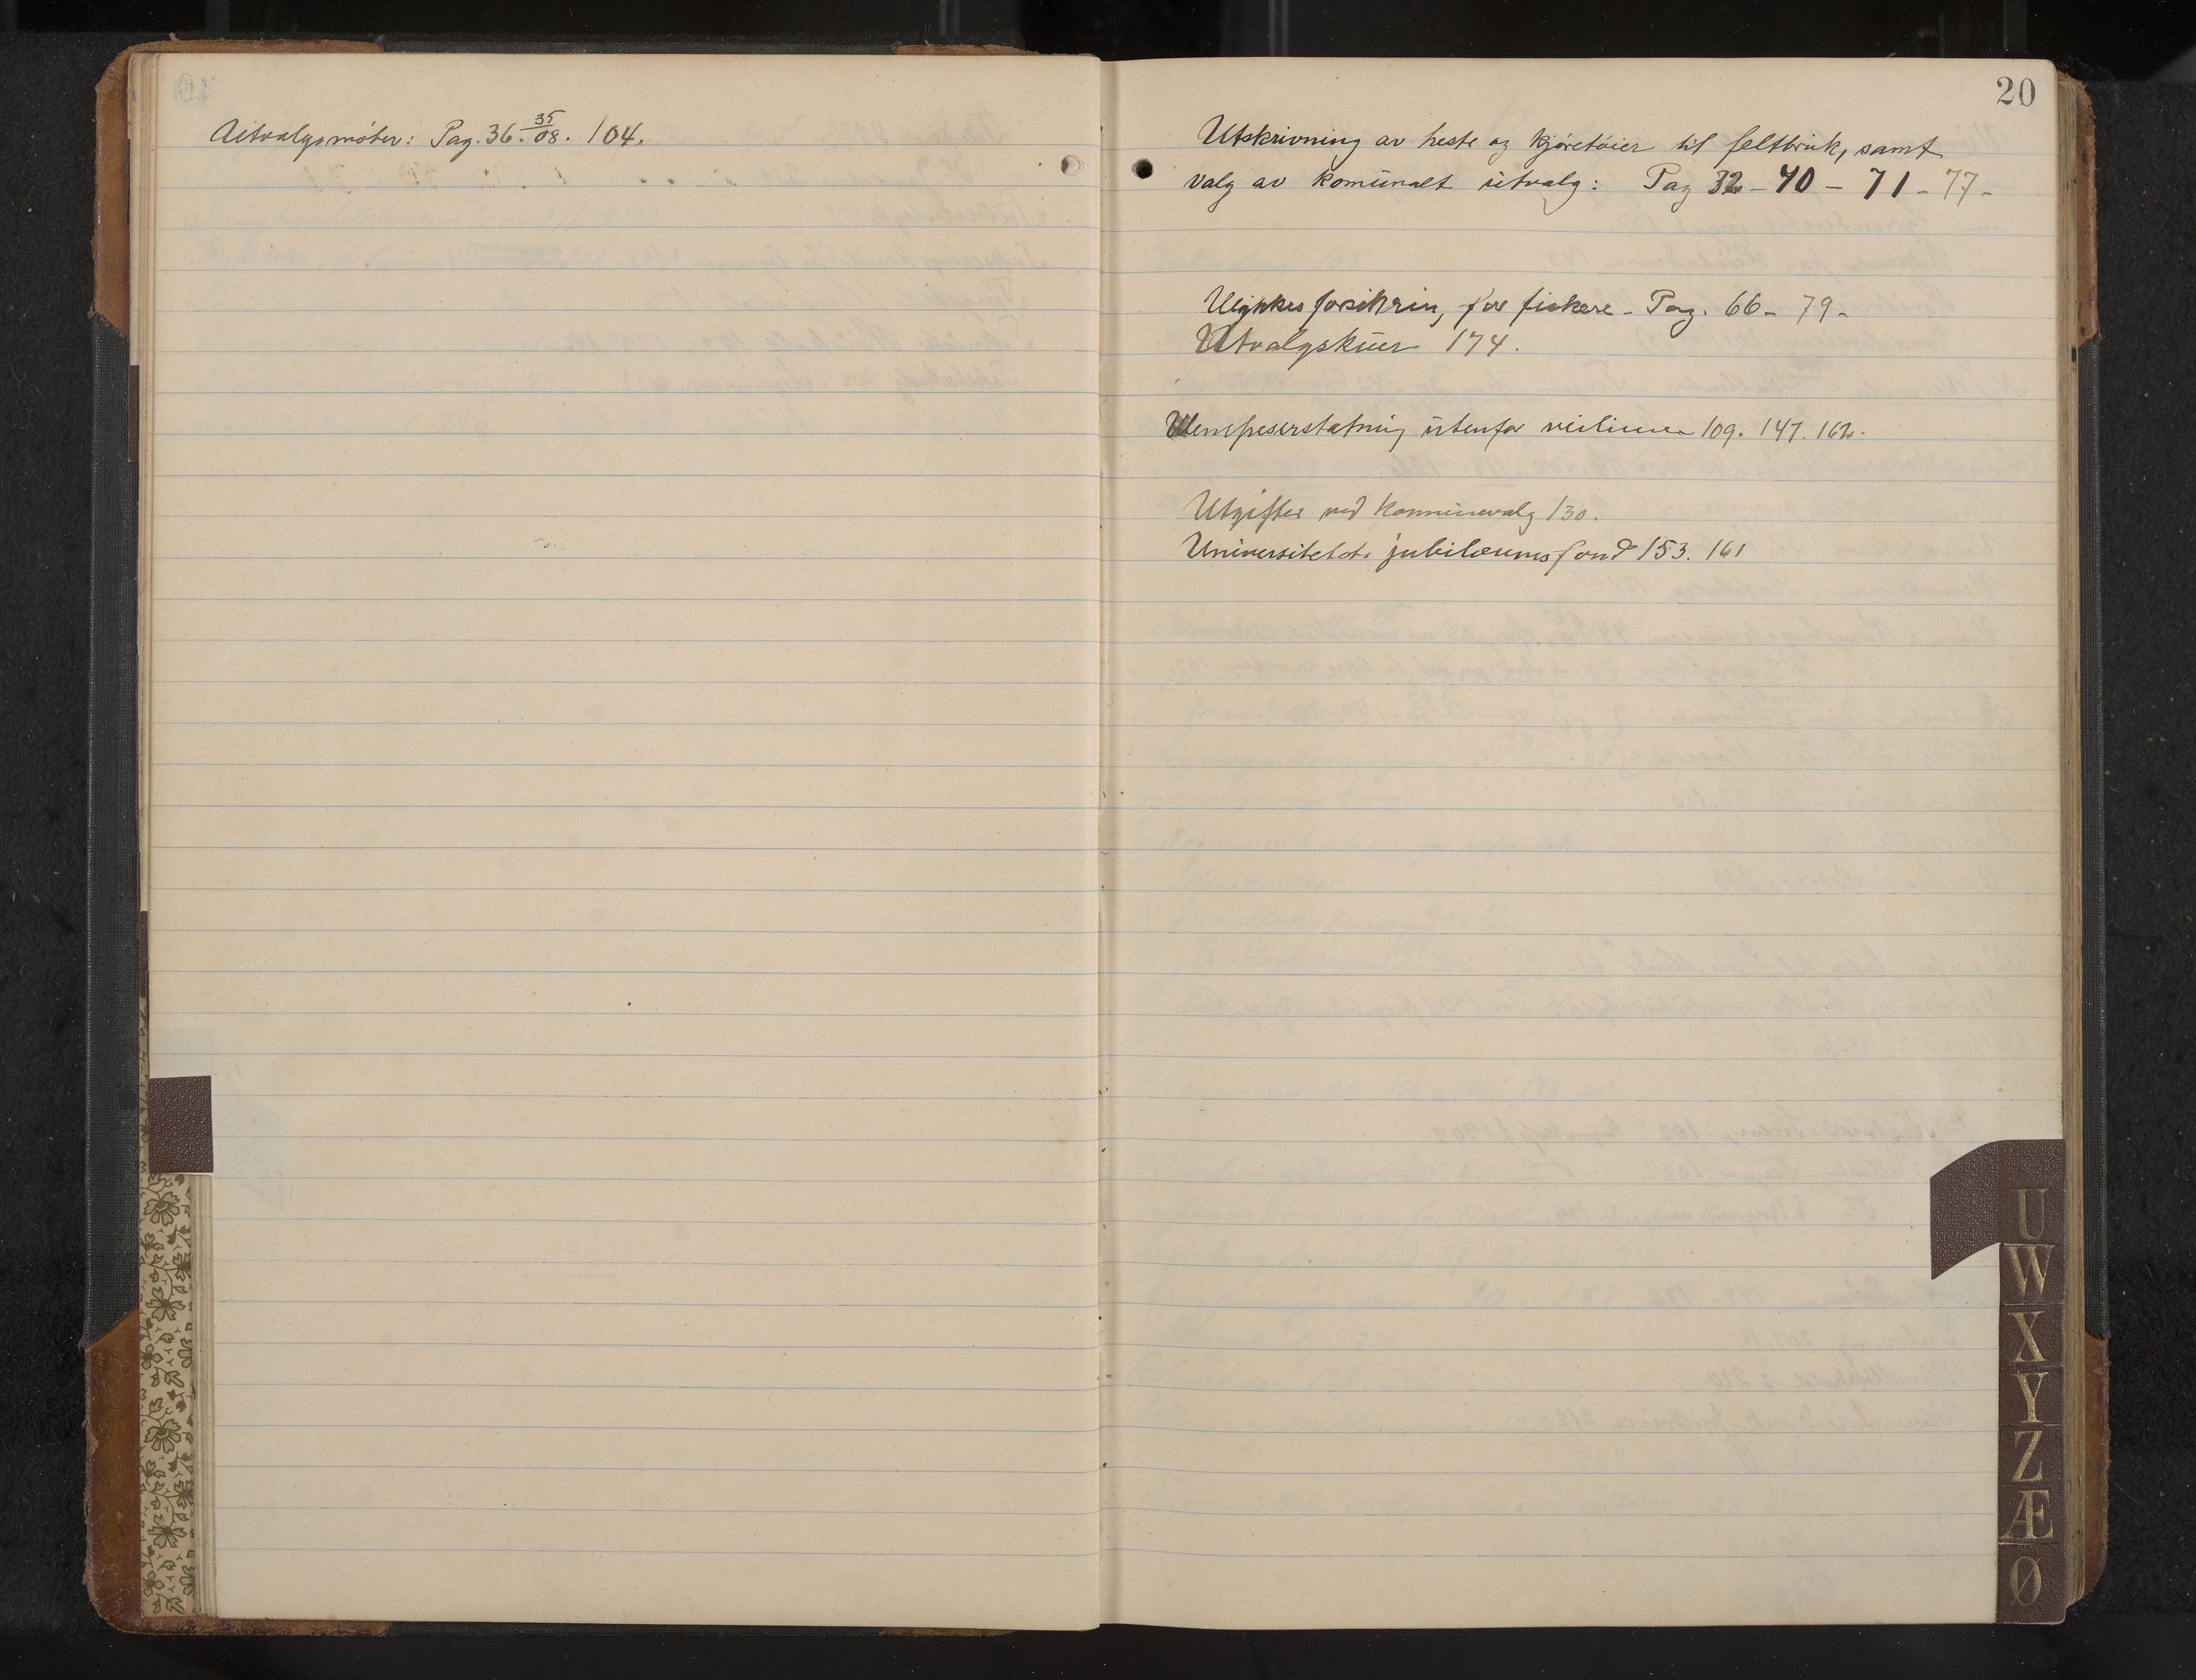 Utvalgsmøter: Pag. 36. 35/08. 104.
20
Utskrivning av heste og kjøretøier til feltbruk, samt
valg av komunalt utvalg: Pag 32 - 40 - 71 - 77 -
Ulykkesforsikring for fiskere - Pag. 66 - 79 -
Utvalgskuer 174.
Ulempeserstatning utenfor veilinien 109. 147. 162.
Utgifter ved kommunevalg 130.
Universitetets jubilæumsfond 153. 161
U
W
X
Y
Z
Æ
Ø